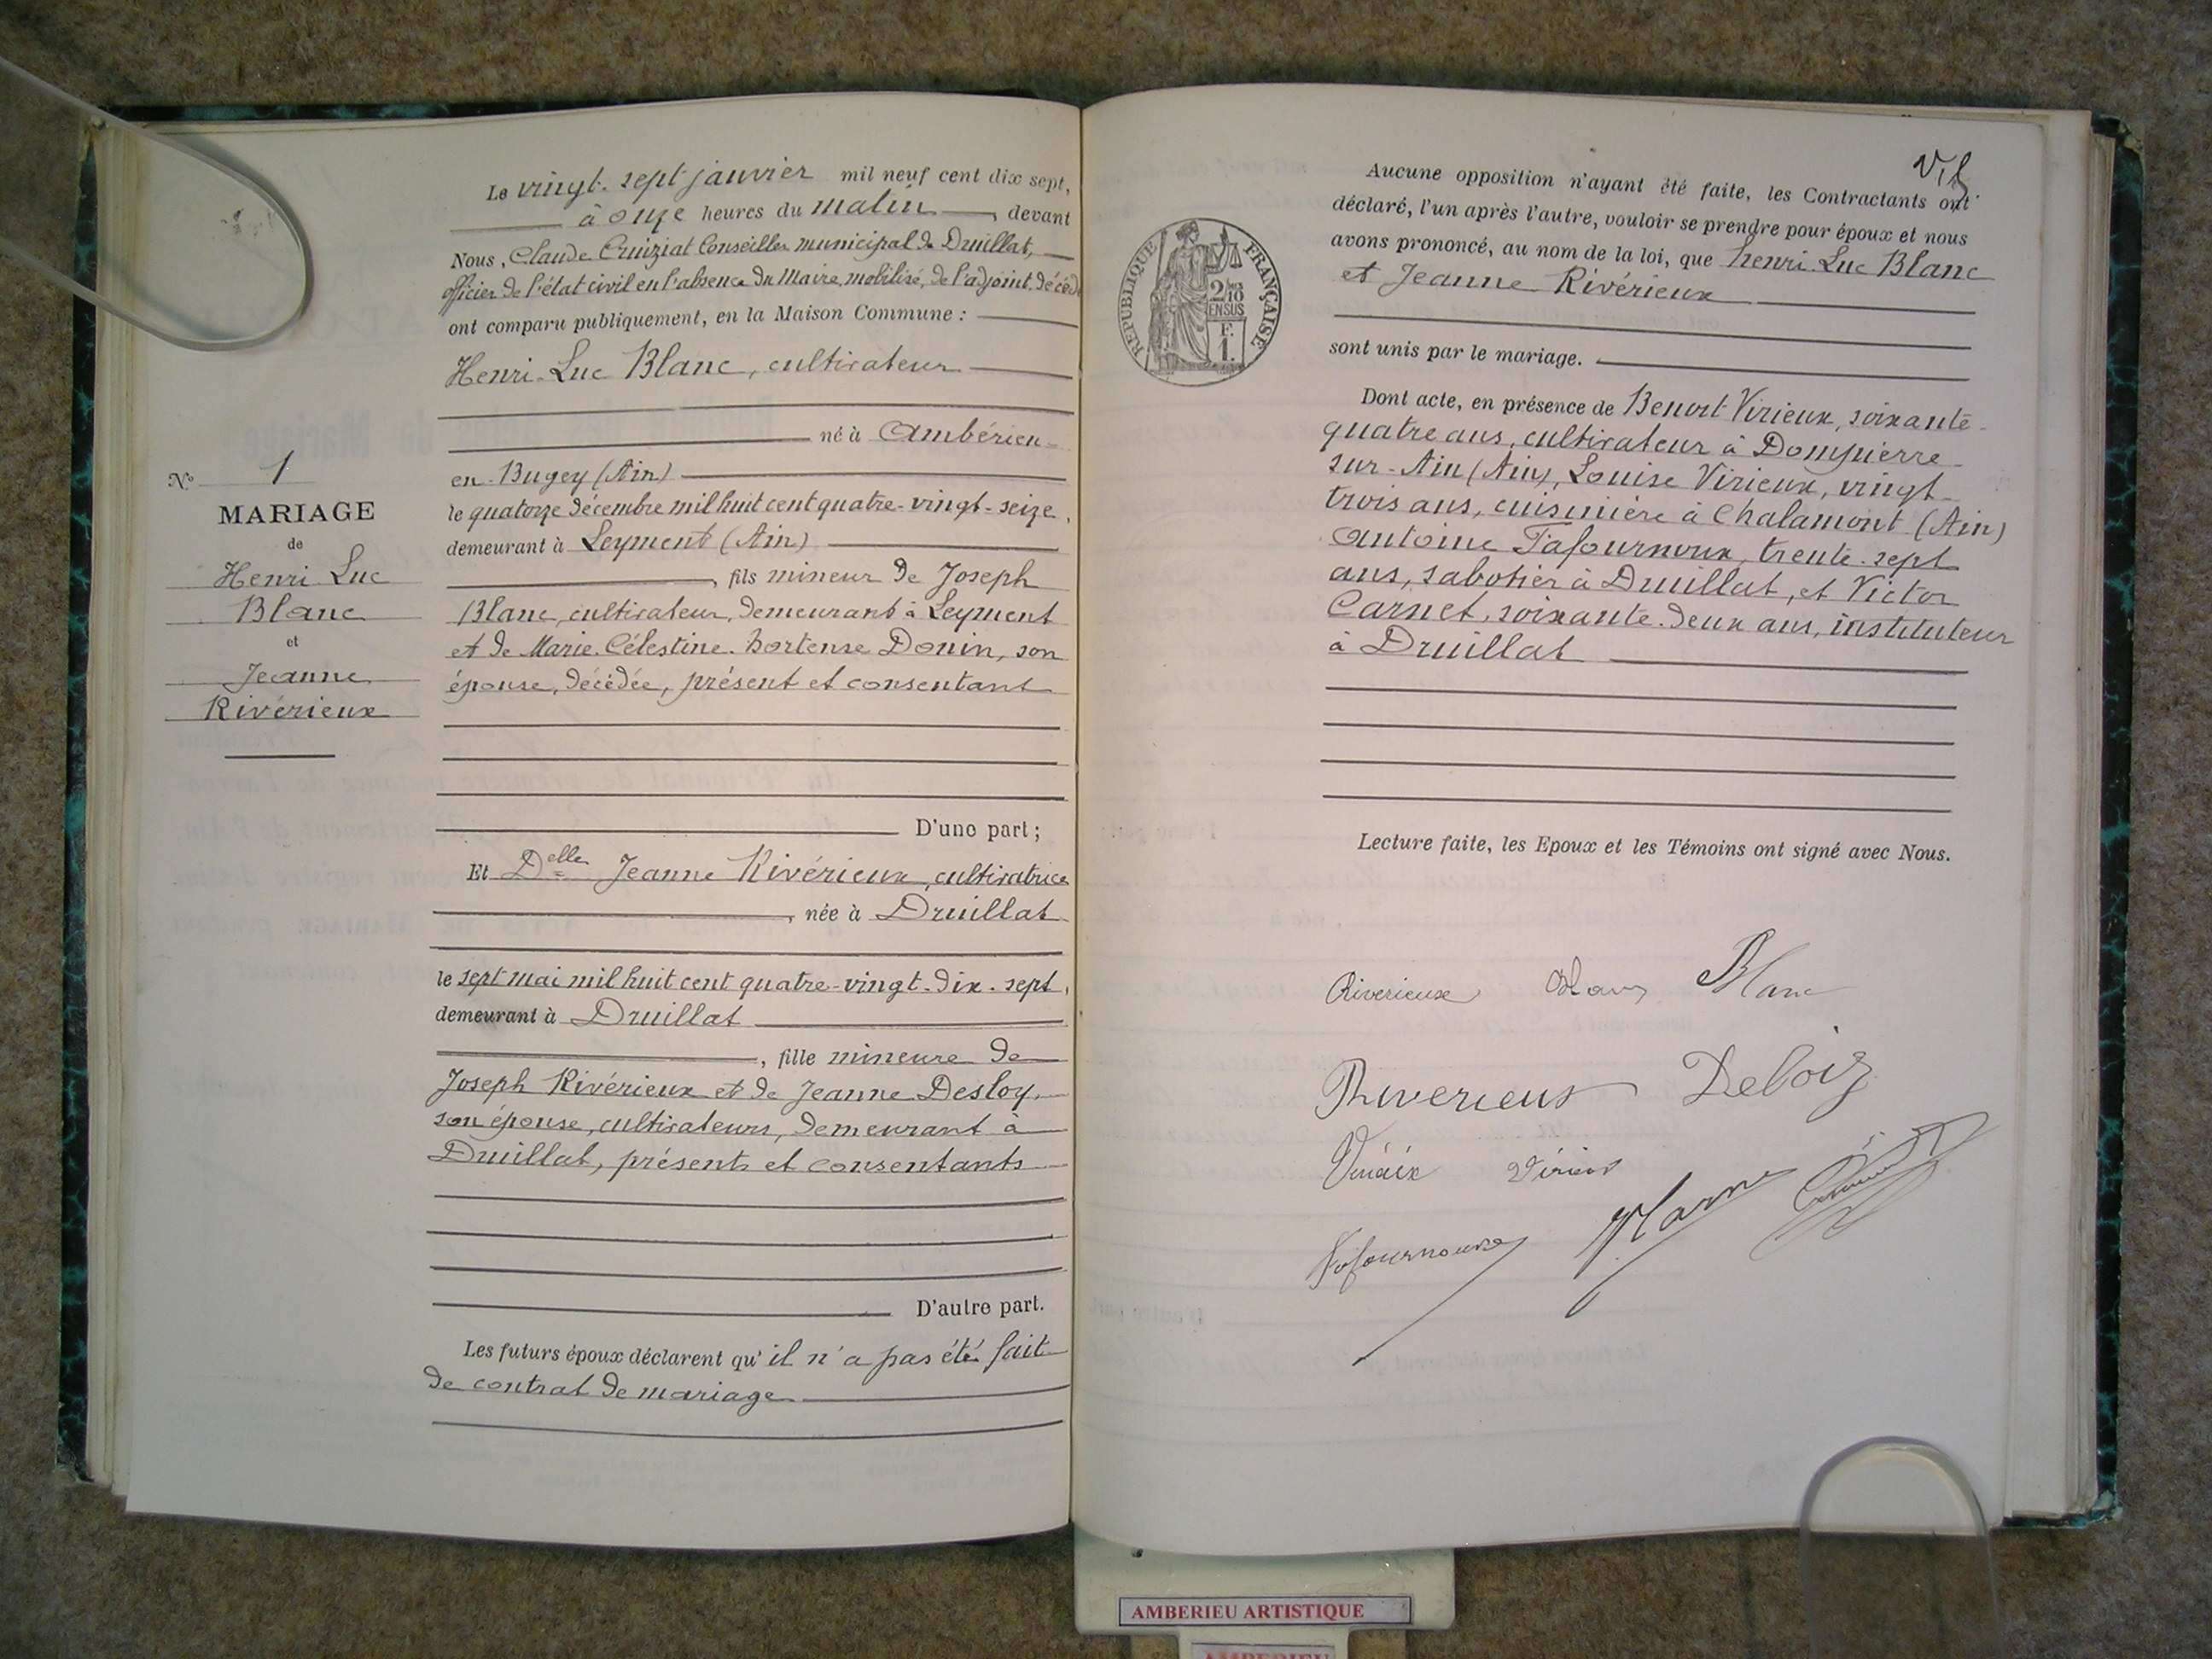 Le vingt-sept janvier mil neuf cent dix sept,
à onze heures du matin, devant
Nous, Claude Cruiziat Conseiller municipal de Druillat,
officier de l'état civil en l'absence du Maire, mobilisé, de l'adjoint décédé
ont comparu publiquement, en la Maison Commune :
Henri-Luc Blanc, cultivateur
né à Ambérieu-
en-Bugey (Ain)
le quatorze décembre mil huit cent quatre-vingt-seize,
demeurant à Leyment (Ain)
, fils mineur de Joseph
Blanc, cultivateur, demeurant à Leyment
et de Marie-Célestine-hortense Donin, son
épouse, décédée, présent et consentant
D'une part ;
Et Delle Jeanne Rivérieux, cultivatrice
, née à Druillat
le sept mai mil huit cent quatre-vingt-dix-sept,
demeurant à Druillat
, fille mineure de
Joseph Rivérieux et de Jeanne Desloy,
son épouse, cultivateurs, demeurant à
Druillat, présents et consentants
D'autre part.
Les futurs époux déclarent qu'il n'a pas été fait
de contrat de mariage
No 1
MARIAGE
de
Henri-Luc
Blanc
et
Jeanne
Rivérieux
REPUBLIQUE FRANÇAISE
2/10
EN SUS
F.
1.
Aucune opposition n'ayant été faite, les Contractants ont
déclaré, l'un après l'autre, vouloir se prendre pour époux et nous
avons prononcé, au nom de la loi, que henri-Luc Blanc
et Jeanne Rivérieux
sont unis par le mariage.
Dont acte, en présence de Benoit Virieux, soixante-
quatre ans, cultivateur à Dompierre-
sur-Ain (Ain), Louise Virieux, vingt-
trois ans, cuisinière à Chalamont (Ain)
Antoine Tafournoux, trente-sept
ans, sabotier à Druillat, et Victor
Carnet, soixante-deux ans, instituteur
à Druillat
Lecture faite, les Epoux et les Témoins ont signé avec Nous.
Riverieux Blanc Blanc
Riverieus Deloiz
Tafournoux
AMBERIEU ARTISTIQUE
AMBERIEU